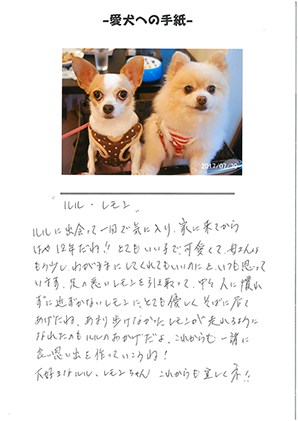 -愛犬への手紙-
2017/07/20
ルル・レモン
ルルに出会って一目で気に入り、家に来てから
はや12年だね!! とてもいい子で可愛くて、母さんは
もう少しわがままにしてくれてもいいのにと、いつも思って
います。足の悪いレモンを引き取って、中々人に慣れ
ずに近ずかないレモンに、とても優しくそばに居て
あげたね。あまり歩けなかったレモンが走れるように
なれたのもルルのおかげだよ。これからも一緒に
良い思い出を作っていこうね!
大好きなルル、レモンちゃん これからも宜しくネ!!